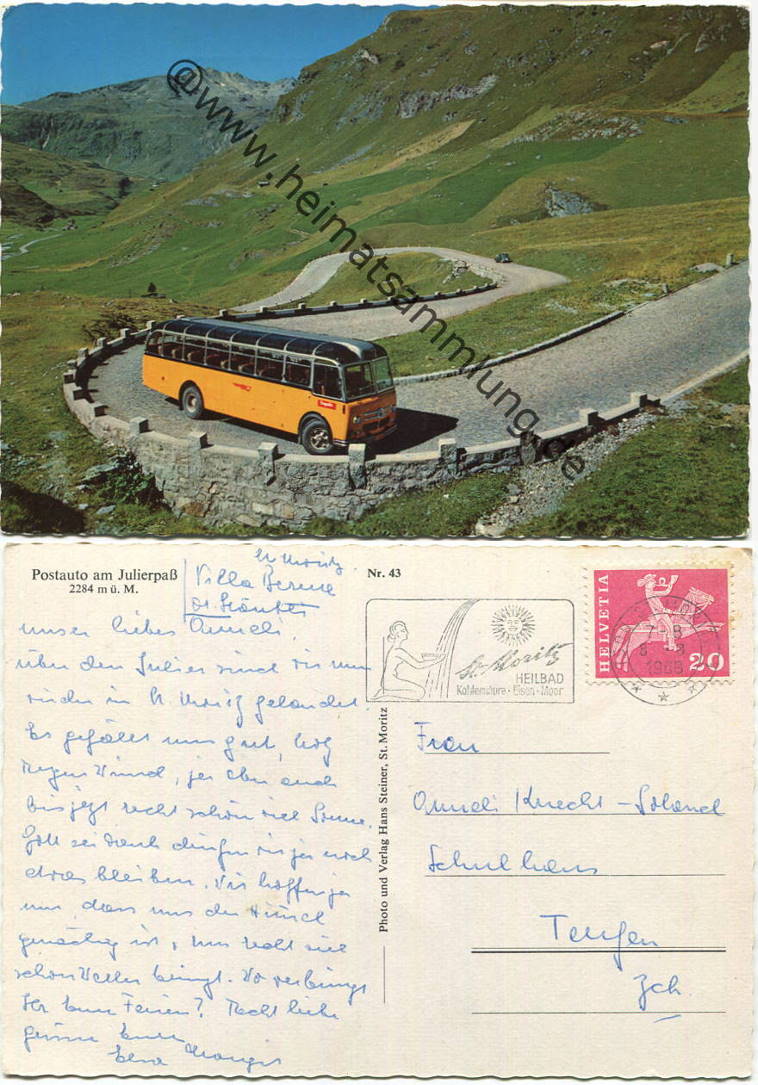 @www.heimatsammlung.de
Postauto am Julierpaß
2284 m ü. M.
St. Moritz
Villa Bernina
Nr. 43
HELVETIA
20
1968
St. Moritz
HEILBAD
Kohlensäure · Eisen · Moor
Photo und Verlag Hans Steiner, St. Moritz
unser liebes Anneli,
über den Julier sind wir nun
wieder in St. Moritz gelandet.
Es gefällt uns gut, trotz
Regen Wind, ja aber auch
bis jetzt recht schön viel Sonne.
Gott sei dank dürfen wir ja noch
etwas bleiben. Wir hoffen ja
nur, dass uns der Himmel
gnädig ist, uns recht viel
schön Wetter bringt. Wo verbringt
Ihr Eure Ferien? Recht liebe
grüsse Euere
Elsa
Frau
Anneli Knecht-
Schulhaus
Teufen
Zch.